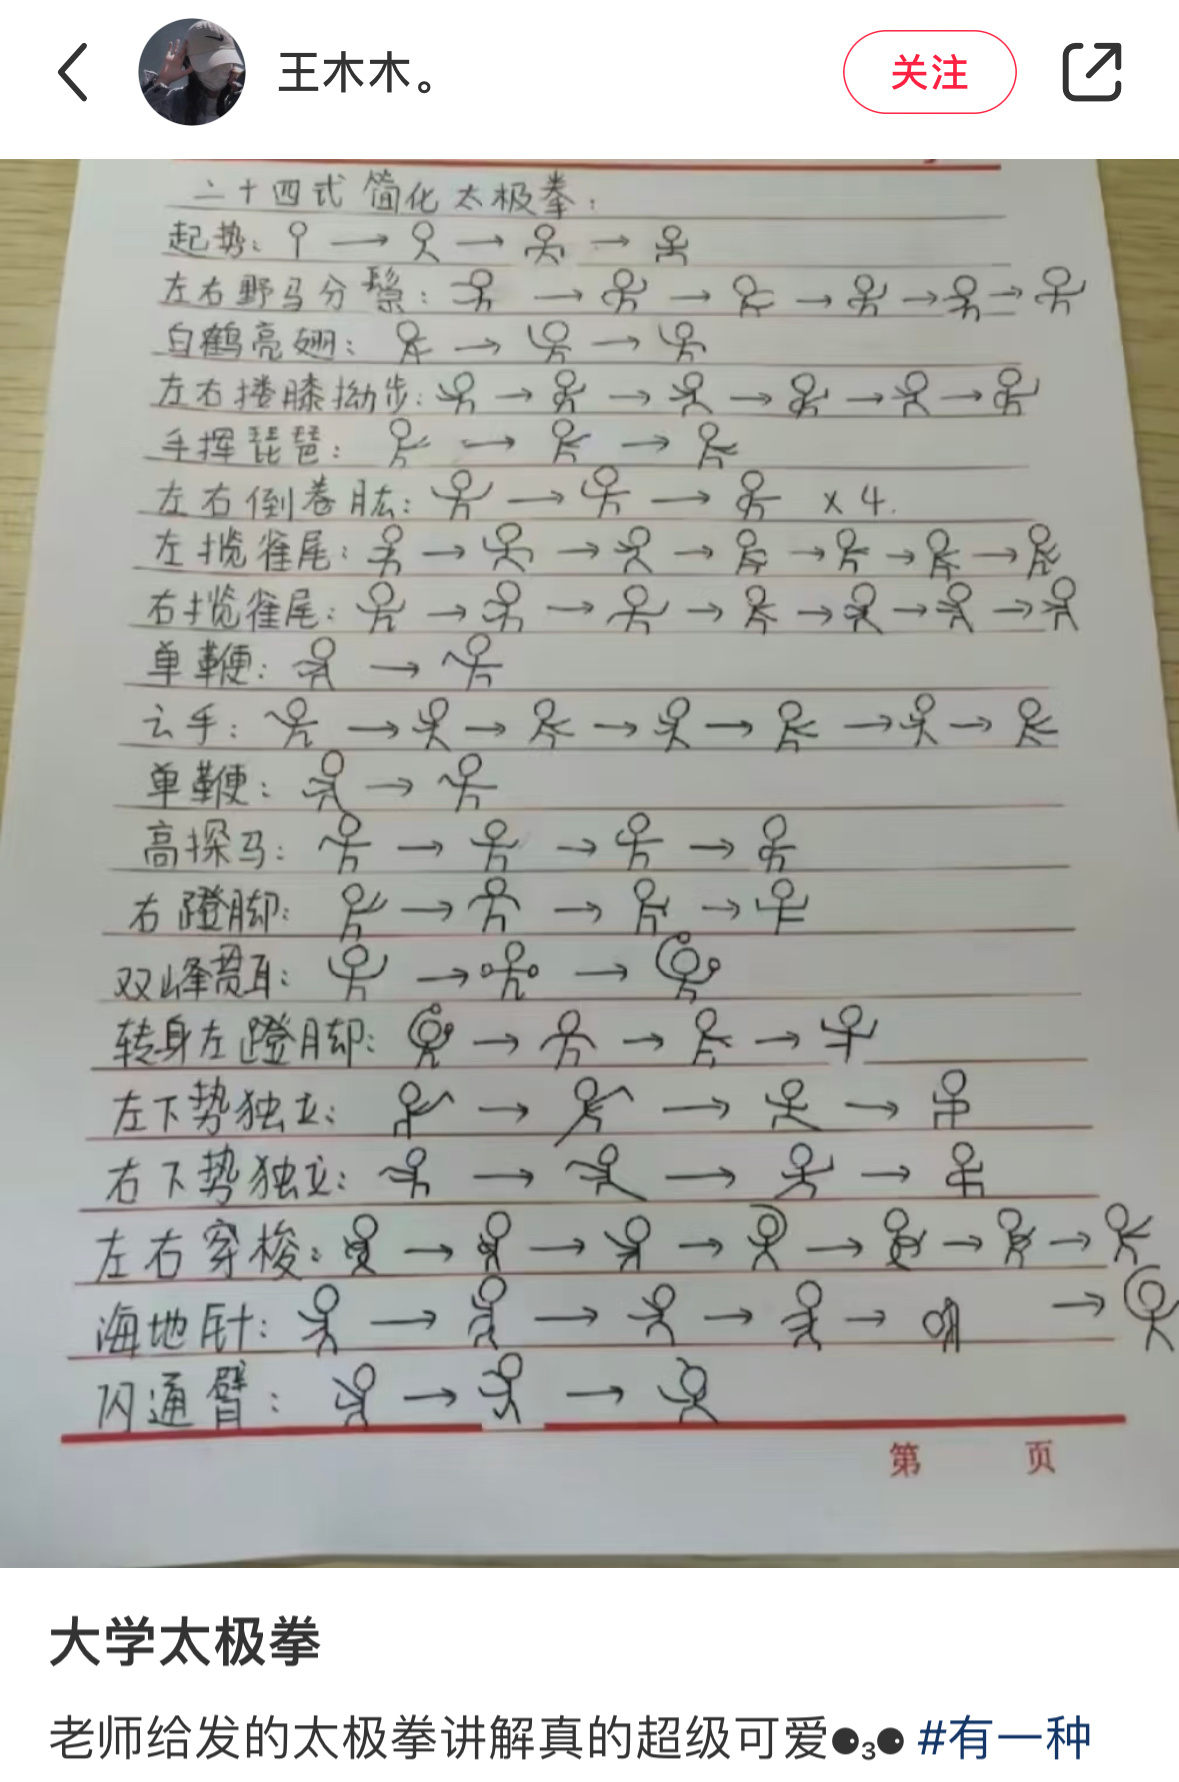 王木木。
关注
二十四式简化太极拳：
起势：
左右野马分鬃：
白鹤亮翅：
左右搂膝拗步：
手挥琵琶：
左右倒卷肱： ×4.
左揽雀尾：
右揽雀尾：
单鞭：
云手：
单鞭：
高探马：
右蹬脚：
双峰贯耳：
转身左蹬脚：
左下势独立：
右下势独立：
左右穿梭：
海地针：
闪通臂：
第 页
大学太极拳
老师给发的太极拳讲解真的超级可爱⚈₃⚈ #有一种